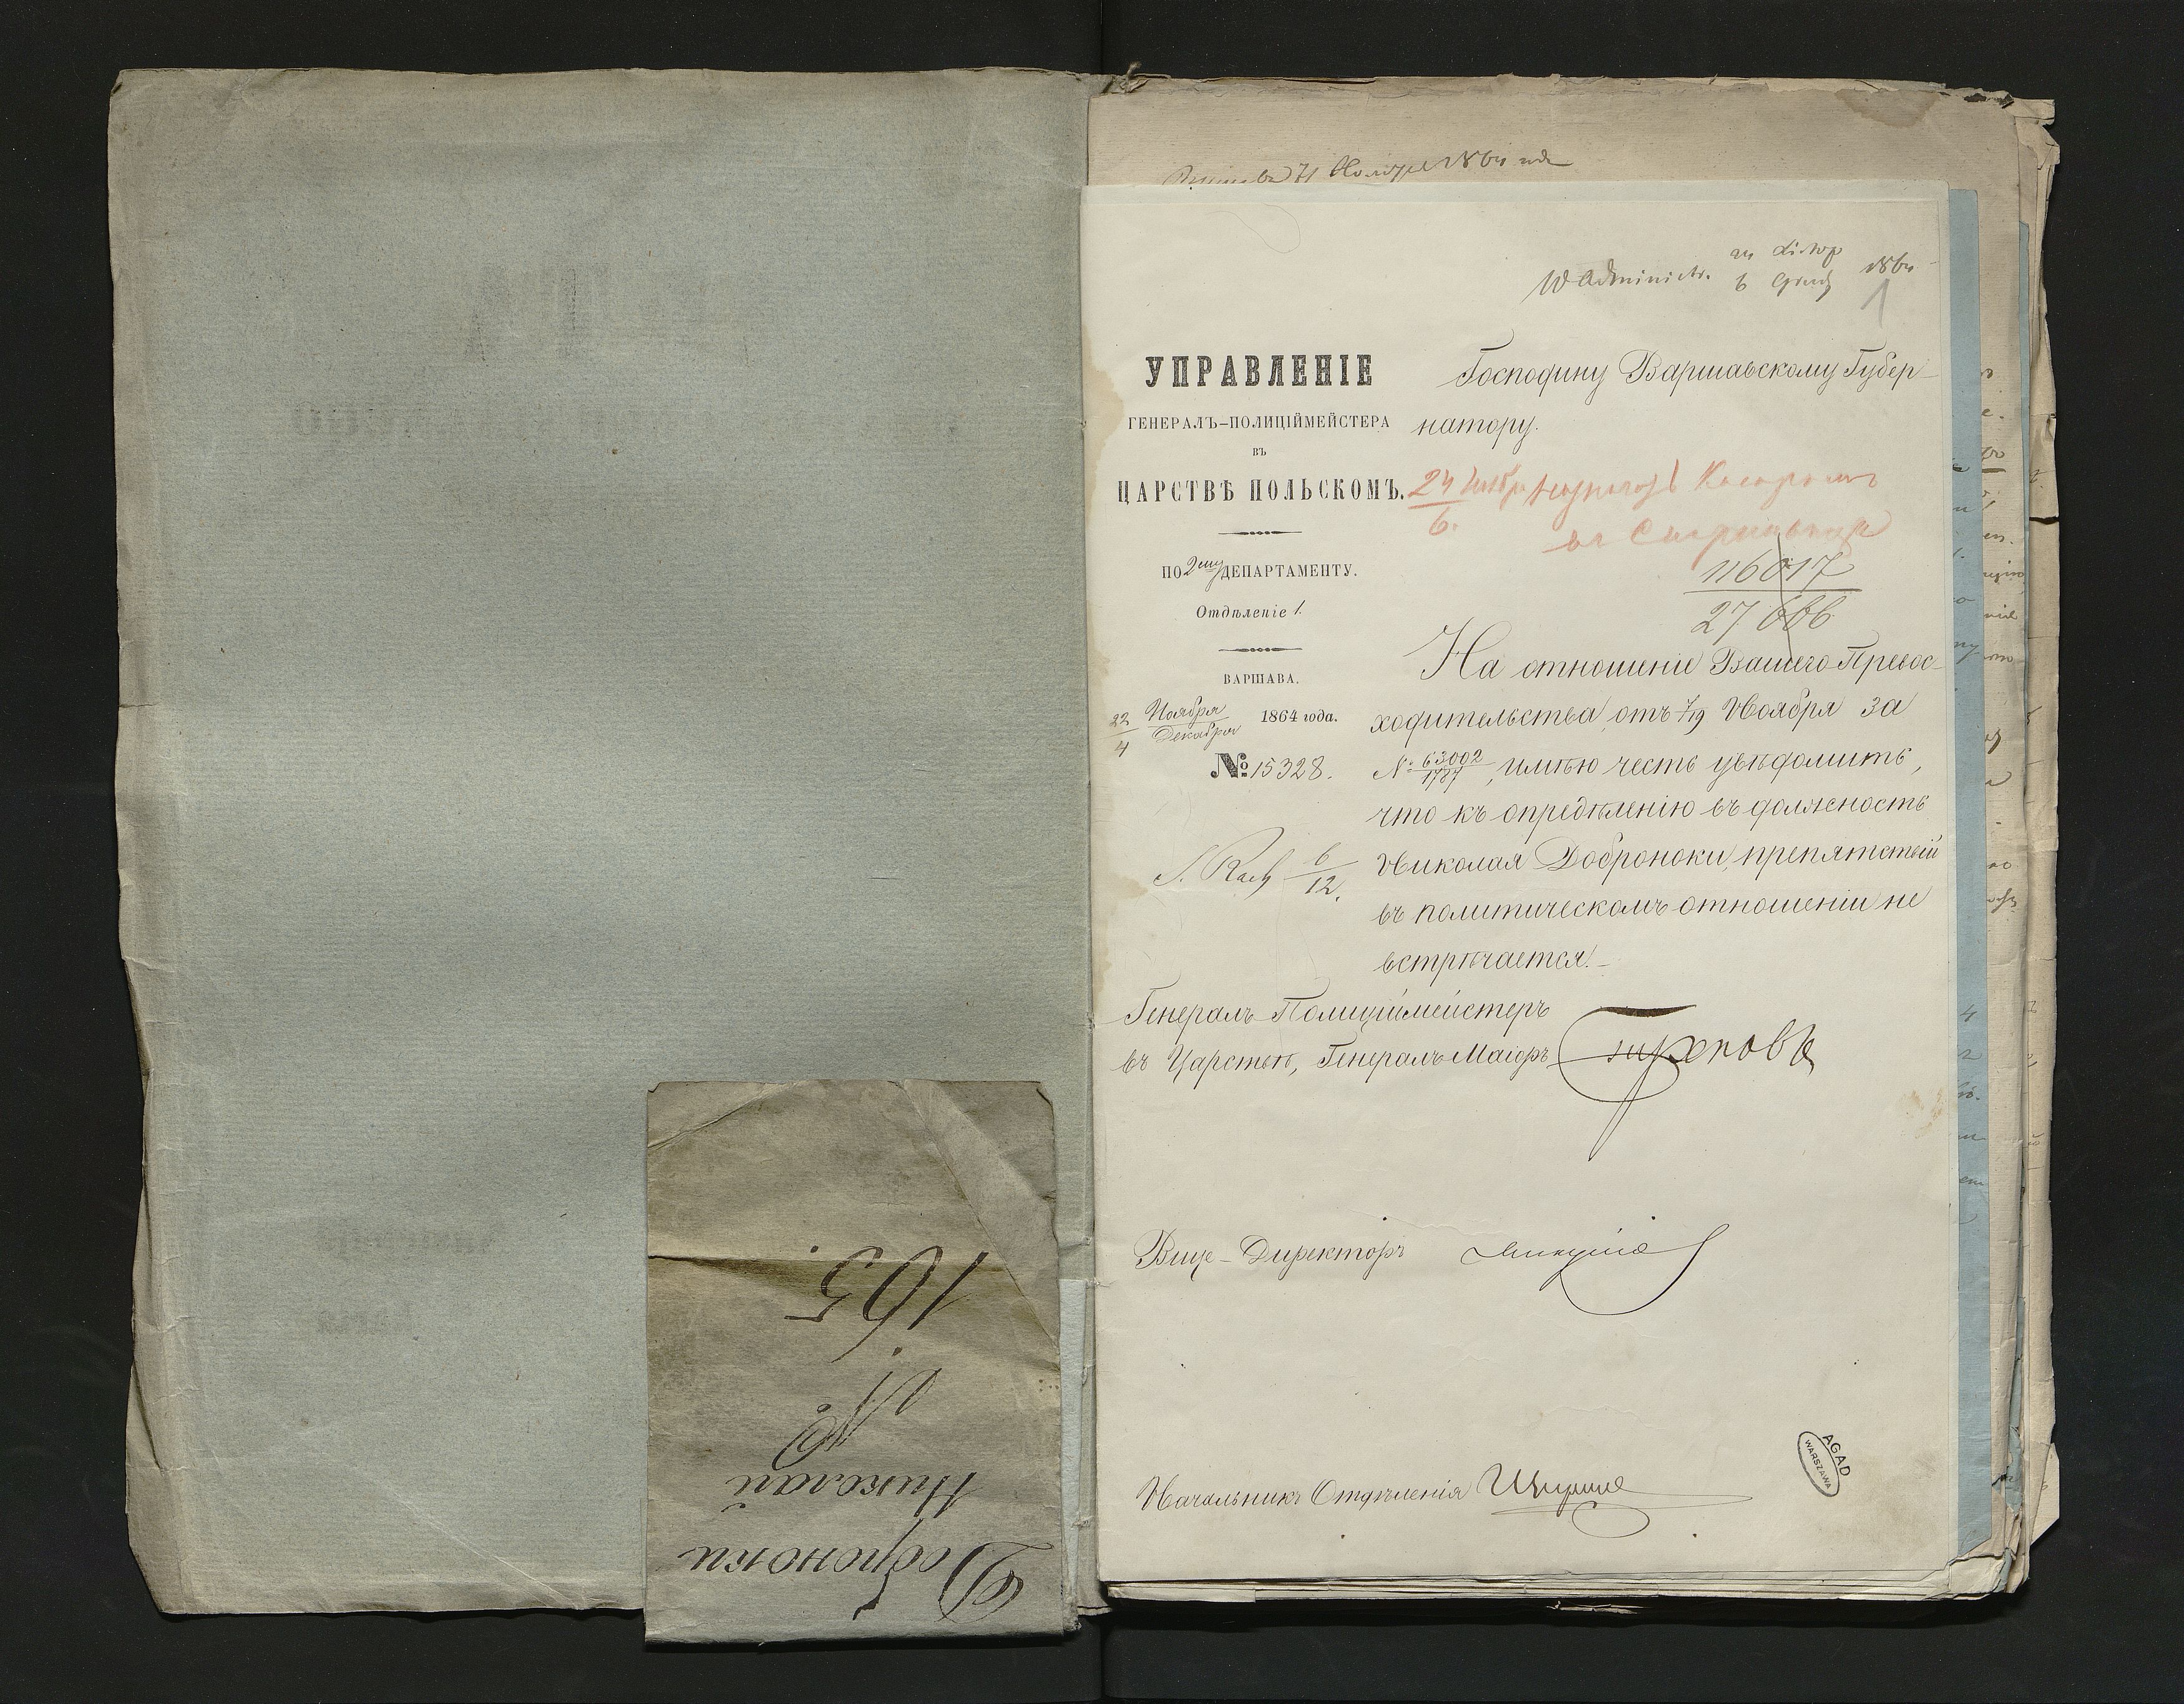 1864
W Administr. 24 Listop 1864
6 Grud
1
УПРАВЛЕНІЕ
ГЕНЕРАЛЪ-ПОЛИЦІЙМЕЙСТЕРА
ВЪ
ЦАРСТВѢ ПОЛЬСКОМЪ.
ПО 2му ДЕПАРТАМЕНТУ.
Отдѣленіе 1.
ВАРШАВА.
22 Ноября
4 Декабря 1864 года.
№ 15328.
6/12.
Господину Варшавскому Губер-
натору.
24
6.
116017
27666
На отношеніе Вашего Превос-
ходительства, отъ 7/19 Ноября за
№ 63002/1787, имѣю честь увѣдомить,
что къ опредѣленію въ должность
Николая Доброноки, препятствій
въ политическомъ отношеніи не
встрѣчается.-
Генералъ-Полиціймейстеръ
въ Царствѣ, Генералъ-Маіоръ Треповъ
Вице-Директоръ
Начальникъ Отдѣленія
AGAD
WARSZAWA
Доброноки
Николай
№
165.